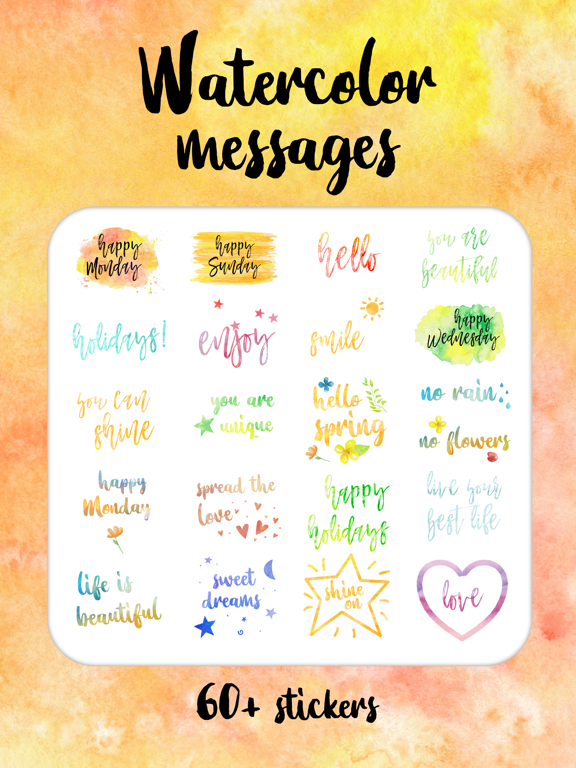 Watercolor
messages
happy
Monday
happy
Sunday
hello
you are
beautiful
holidays!
enjoy
smile
happy
Wednesday
you can
shine
you are
unique
hello
spring
no rain
no flowers
happy
Monday
spread the
love
happy
holidays
live your
best life
Life is
beautiful
sweet
dreams
shine
on
love
60+ stickers